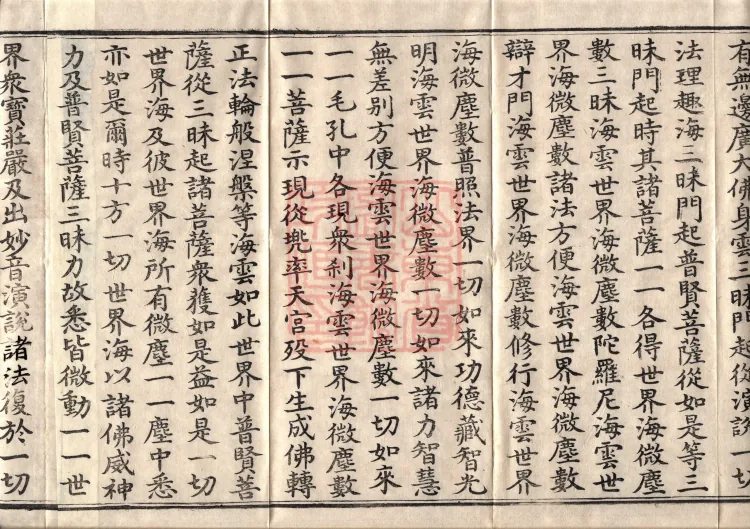 有無邊廣大佛身雲三昧門起從演說一切
法理趣海三昧門起普賢菩薩從如是等三
昧門起時其諸菩薩一一各得世界海微塵
數三昧海雲世界海微塵數陀羅尼海雲世
界海微塵數諸法方便海雲世界海微塵數
辯才門海雲世界海微塵數修行海雲世界
海微塵數普照法界一切如來功德藏智光
明海雲世界海微塵數一切如來諸力智慧
無差別方便海雲世界海微塵數一切如來
一一毛孔中各現衆刹海雲世界海微塵數
一一菩薩示現從兠率天宮殁下生成佛轉
正法輪般涅槃等海雲如此世界中普賢菩
薩從三昧起諸菩薩衆獲如是益如是一切
世界海及彼世界海所有微塵一一塵中悉
亦如是爾時十方一切世界海以諸佛威神
力及普賢菩薩三昧力故悉皆微動一一世
界衆寶莊嚴及出妙音演說諸法復於一切